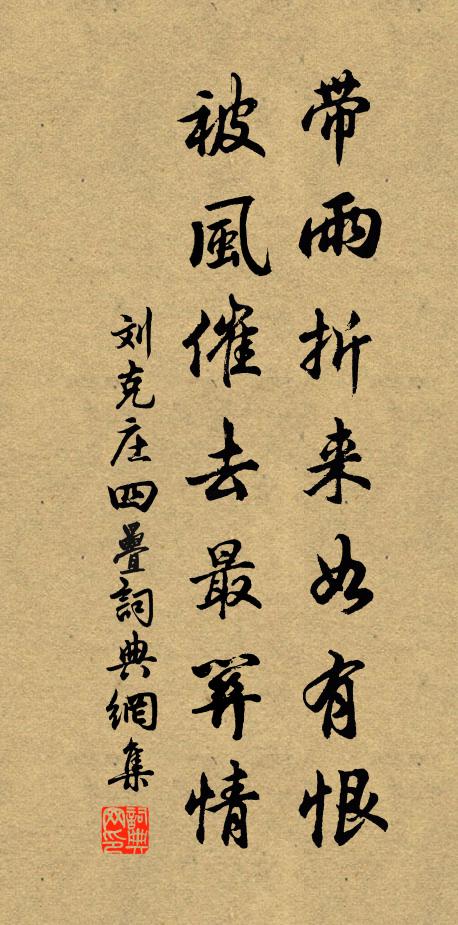 带雨折来如有恨
被風催去最関情
刘克庄四疊詞典網集
詞典網印